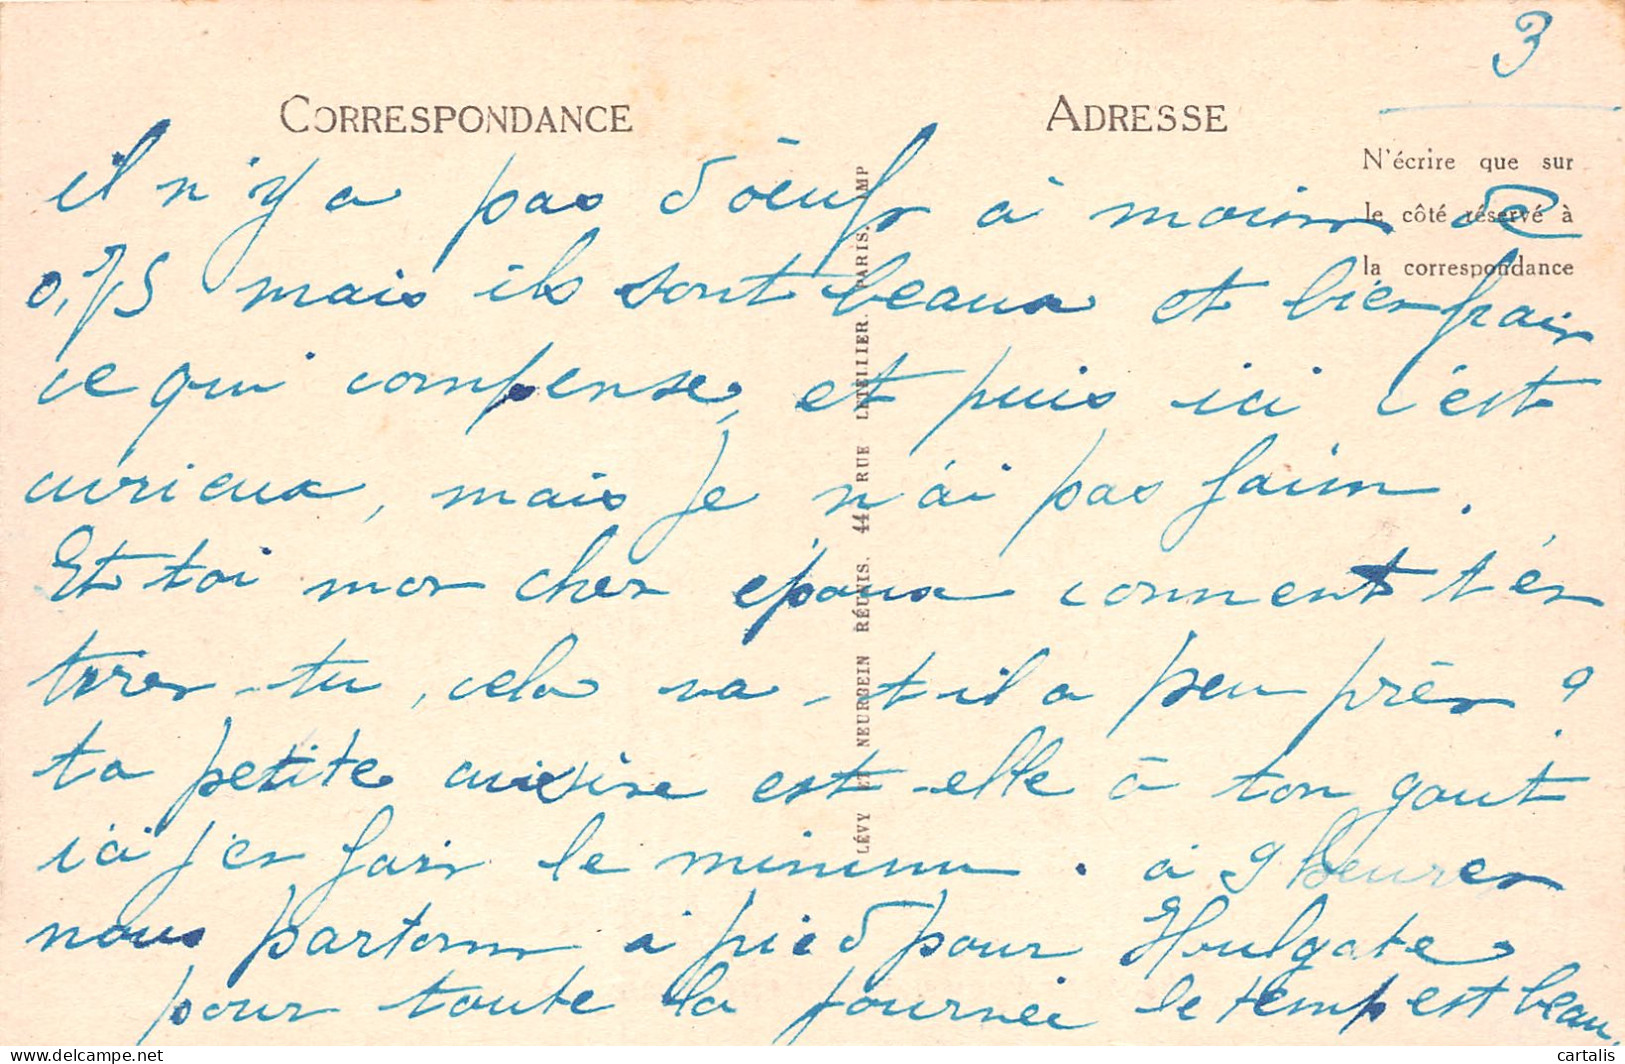 3
CORRESPONDANCE
ADRESSE
N'écrire que sur
le côté réservé à
la correspondance
LÉVY ET NEURDEIN RÉUNIS. 44, RUE LETELLIER. PARIS. IMP
il n'y a pas d'oeufs à moins de
0,75 mais ils sont beaux et bien frais
ce qui compense, et puis ici c'est
curieux, mais je n'ai pas faim.
Et toi mon cher époux comment t'en
tires-tu, cela va-t-il a peu près ?
ta petite cuisine est-elle à ton gout
ici j'en fais le minimum. à 9 heures
nous partons à pied pour Houlgate
pour toute la journée le temps est beau.
cartalis